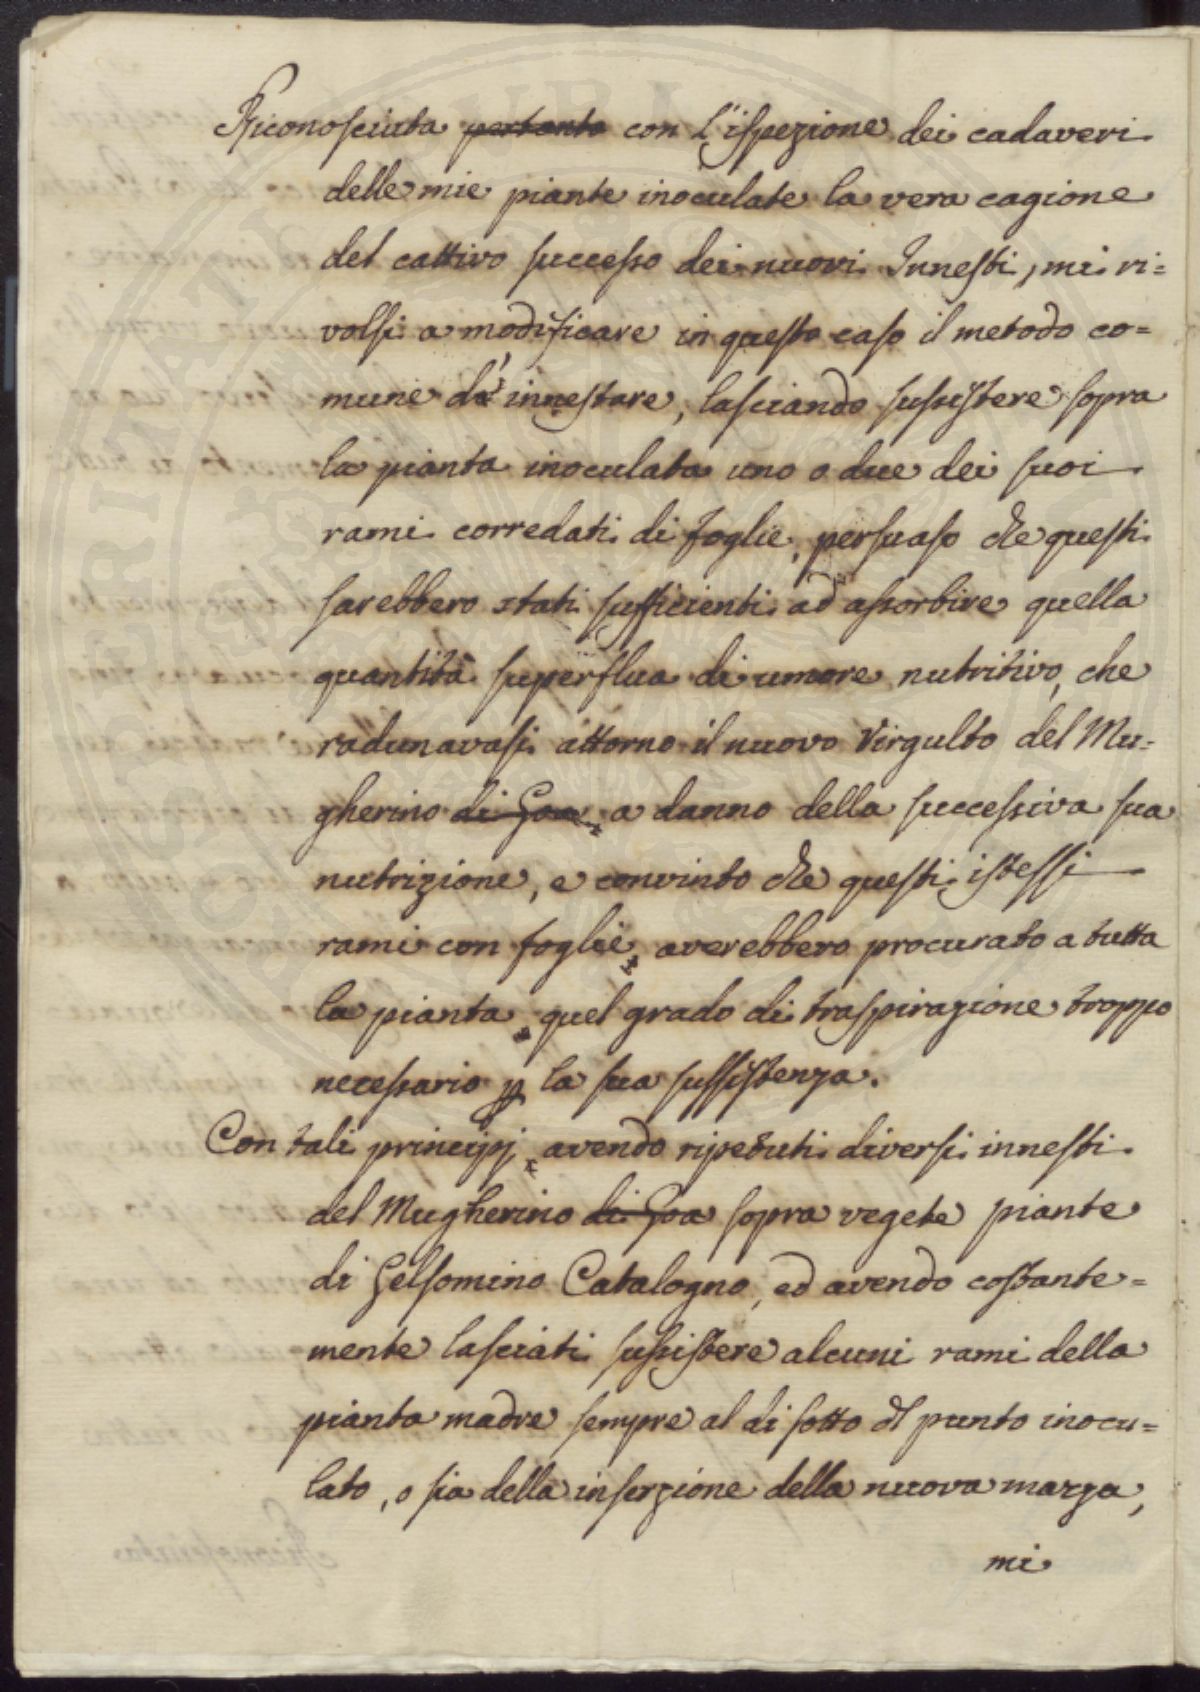 Riconosciuta pertanto con l'ispezione dei cadaveri
delle mie piante inoculate la vera cagione
del cattivo successo dei nuovi Innesti, mi ri=
volsi a modificare in questo caso il metodo co=
mune d'innestare, lasciando sussistere sopra
la pianta inoculata uno o due dei suoi
rami corredati di foglie, persuaso che questi
sarebbero stati sufficienti ad assorbire quella
quantità superflua di umore nutritivo, che
radunavasi attorno il nuovo Virgulto del Mu=
gherino di Goa a danno della successiva sua
nutrizione, e convinto che questi istessi
rami con foglie averebbero procurato a tutta
la pianta quel grado di traspirazione troppo
necessario p la sua sussistenza.
Con tali principj avendo ripetuti diversi innesti
del Mugherino di Goa sopra vegete piante
di Gelsomino Catalogno, ed avendo costante=
mente lasciati sussistere alcuni rami della
pianta madre sempre al di sotto dl punto inocu=
lato, o sia della inserzione della nuova marza,
mi